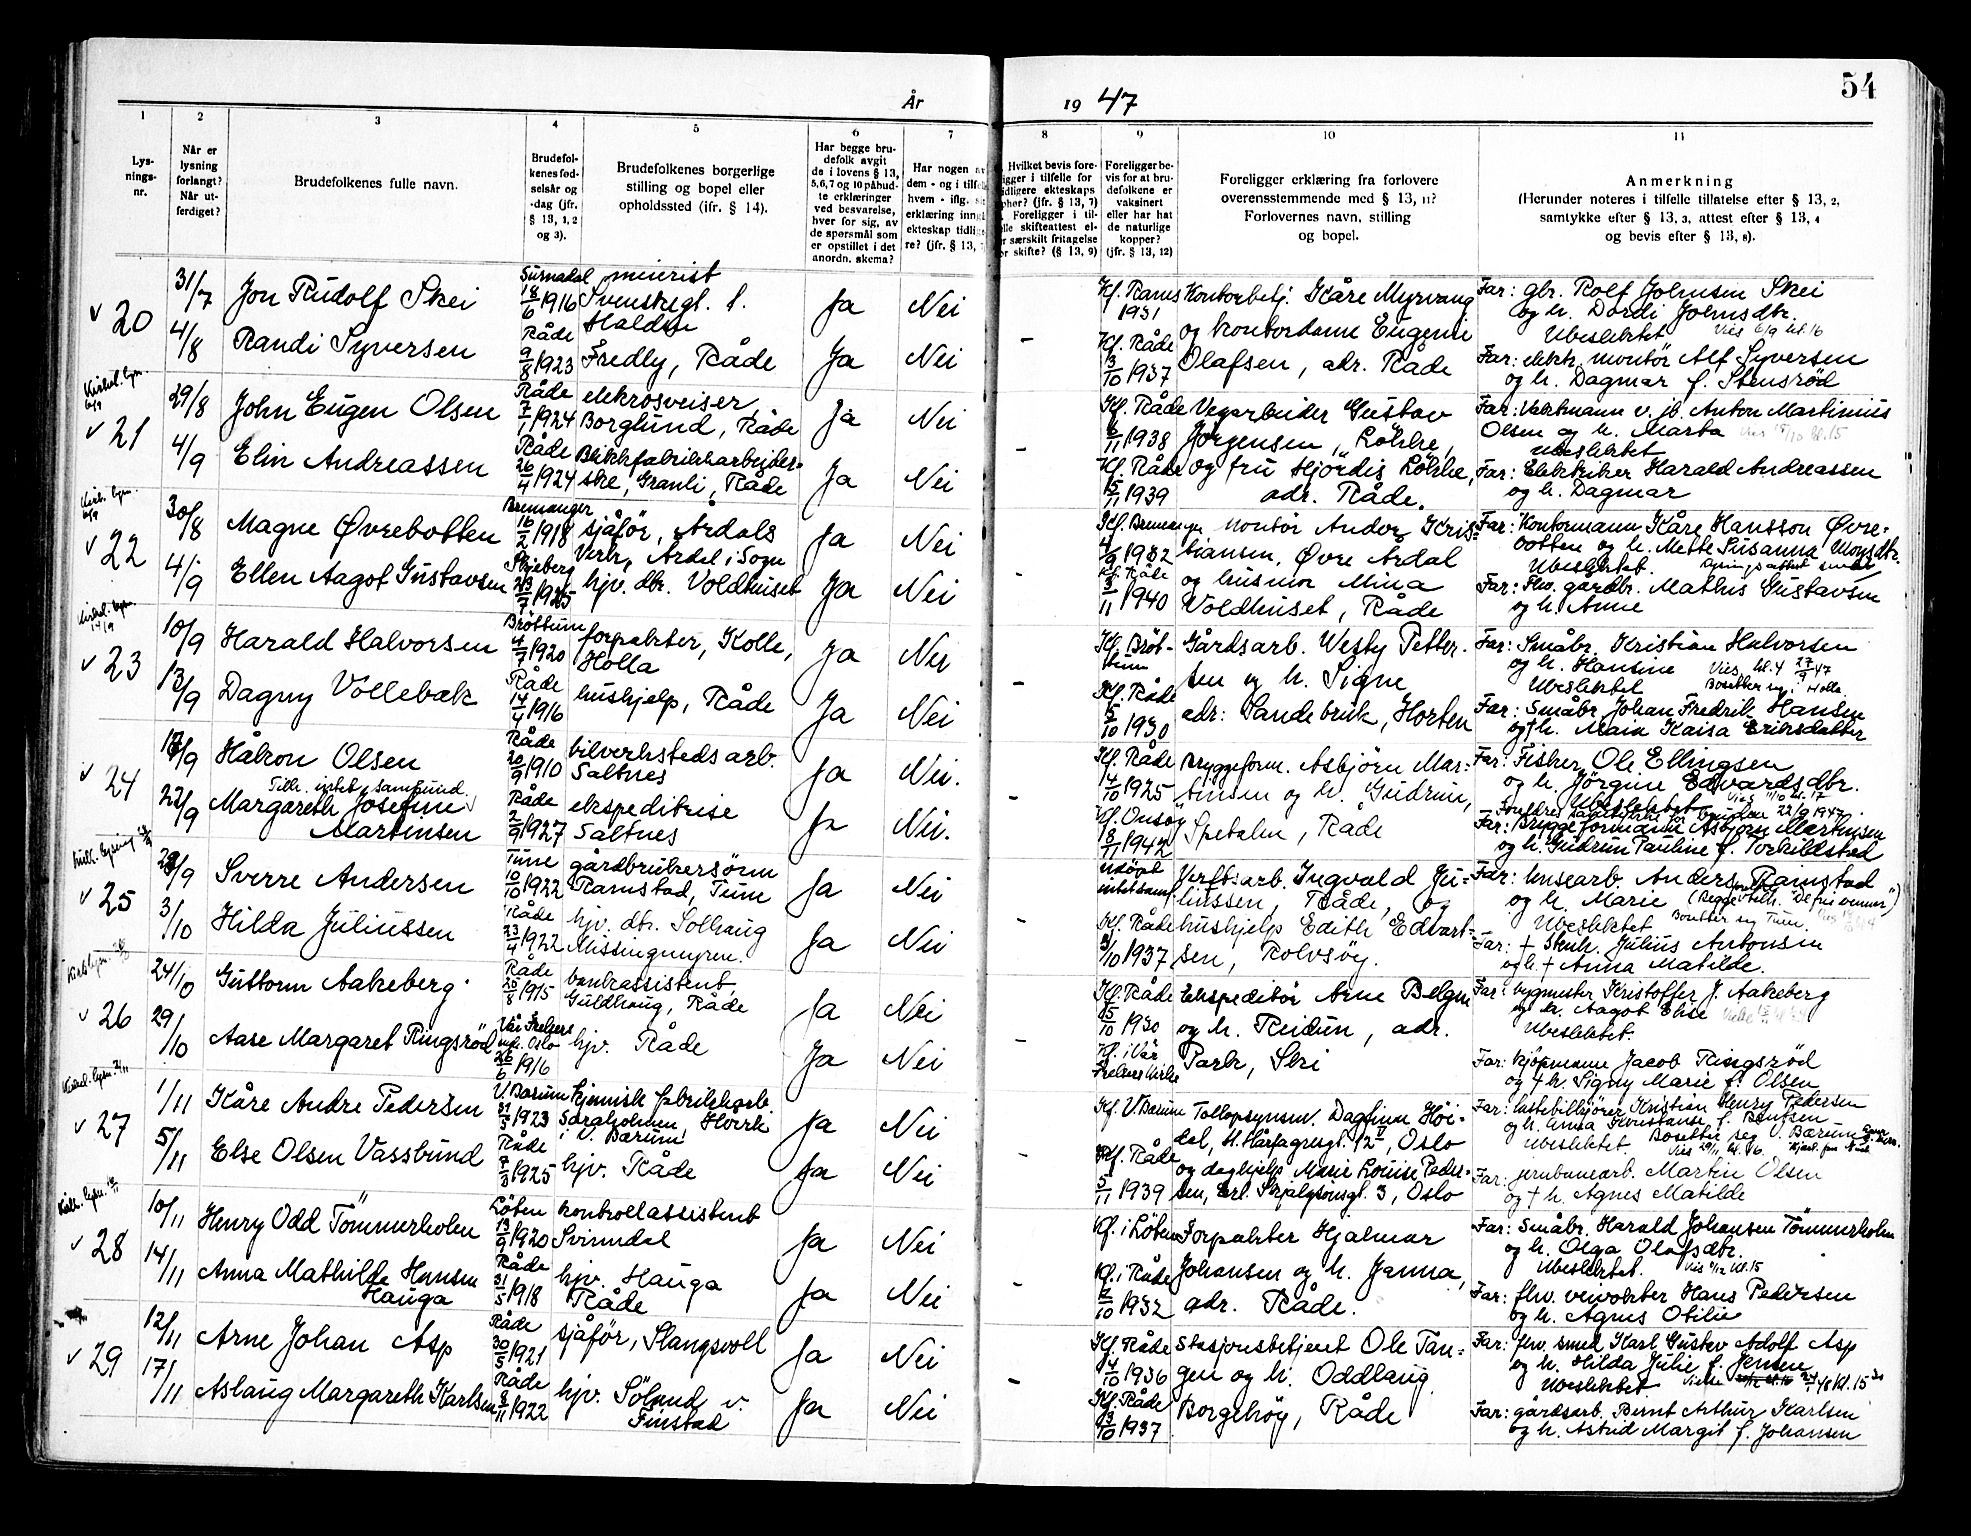 54
År 19 47
1
2
3
4
5
6
7
8
9
10
11
Lys-
nings-
nr.
Når er
lysning
forlangt?
Når ut-
ferdiget?
Brudefolkenes fulle navn.
Brudefol-
kenes fød-
selsår og
-dag (jfr.
§ 13, 1, 2
og 3).
Brudefolkenes borgerlige
stilling og bopel eller
opholdssted (ifr. § 14).
Har begge bru-
defolk avgit
de i lovens § 13,
5, 6, 7 og 10 påbud-
te erklæringer
ved besvarelse,
hver for sig, av
de spørsmål som
er opstillet i det
anordn. skema?
Har nogen av
dem - og i tilfelle
hvem - iflg.
erklæring inng
ekteskap tidlig
re? (jfr. § 13,
Hvilket bevis fore-
igger i tilfelle for
idligere ekteskaps
phør? (jfr. § 13, 7)
Foreligger i til-
lle skifteattest el-
r særskilt fritagelse
or skifte? (§ 13, 9)
Foreligger be-
vis for at bru-
defolkene er
vaksinert
eller har hat
de naturlige
kopper?
(jfr. § 13, 12)
Foreligger erklæring fra forlovere
overensstemmende med § 13, 11?
Forlovernes navn, stilling
og bopel.
Anmerkning
(Herunder noteres i tilfelle tillatelse efter § 13, 2,
samtykke efter § 13, 3, attest efter § 13, 4
og bevis efter § 13, 8).
v 20
31/7
4/8
Jon Rudolf Skei
Randi Syversen
Surnadal
18/6 1916
Råde
9/8 1923
meierist
Svenskegt. 1.
Halden
Fredly, Råde
Ja
Ja
Nei
Nei
-
Kf. Råde
3/10 1937
Kontorbetj. Kåre Myrvang
og kontordame Eugenie
Olafsen, adr. Råde
Far: gbr. Rolf Johnsen Skei
og h. Dordi Johnsdtr.
Ubeslektet Vies 6/9 kl. 16
Far: elektr. montör Alf Syversen
og h. Dagmar f. Stensröd
v 21
29/8
4/9
John Eugen Olsen
Elin Andreassen
Råde
7/1 1924
Råde
26/4 1924
elekrosveiser,
Borglund, Råde
Blikkfabrikkarbejder-
ske, Granli, Råde
Ja
Ja
Nei
Nei
-
Kf. Råde
6/11 1938
Kf. Råde
15/11 1939
Vegarbeider Gustav
Jörgensen, Lökke,
og fru Hjördis Lökke,
adr. Råde.
Far: Vaktmann v. jb. Anton Martinius
Olsen og h. Marta
ubeslektet
Far: Elektriker Harald Andreassen
og h. Dagmar
v 22
30/8
4/9
Magne Øvrebotten
Ellen Aagot Gustavsen
Bremanger
16/2 1918
Skjeberg
23/7 1925
sjåför, Årdals
Verk, Ardal i Sogn
hjv. dtr. Voldhuset
Ja
Ja
Nei
Nei
-
1932
Kf. Råde
3/11 1940
montör Anders Kris-
tiansen, Øvre Ardal
og husmor Mina
Voldhuset, Råde
Far: Kontormann Kåre Hansson Øvre-
botten og h. Mette Susanna Monsdtr.
Ubeslektet. Lysningsattest sendt
Far: Fhv. gårdbr. Mathis Gustavsen
og h. Anne
v 23
10/9
13/9
Harald Halvorsen
Dagny Vollebæk
Bröttum
4/7 1920
Råde
14/4 1916
forpakter, Kolle,
Holla
hushjelp, Råde
Ja
Ja
Nei
Nei
-
Kf. Bröt-
tum
Kf. Råde
5/10 1930
Gårdsarb. Westy Petter-
sen og h. Signe
adr: Sandebruk, Horten
Far: Småbr. Kristian Halvorsen
og h. Hansine Vies kl. 4 27/9 47
Ubeslektet Bosetter seg i Holla.
Far: Småbr. Johan Fredrik Hansen
og † h. Maia Kaisa Eriksdatter
v 24
22/9
Håkon Olsen
Tilh. intet samfund.
Margareth Josefine
Martinsen
Råde
20/9 1910
Råde
2/9 1927
bilverksteds arb.
Saltnes
ekspeditrise
Saltnes
Ja
Ja
Nei.
Nei.
-
Kf. Råde
4/10 1925
Kf. Onsöy
8/11 1942
Bryggeform. Asbjörn Mar-
tinsen og h. Gudrun,
Spetalen, Råde
Far: Fisker Ole Ellingsen
og h. Jörgine Edvardsdtr.
Ubeslektet Vies 11/10 kl. 17
Far: Bryggeformann Asbjörn Martinsen
og h. Gudrun Pauline f. Torkildstad
v 25
3/10
Sverre Andersen
Hilda Juliussen
Tune
10/10 1922
Råde
23/4 1922
gårdbrukersönn
Ramstad, Tune
hjv. dtr. Solhaug
Missingmyren.
Ja
Ja
Nei
Nei
-
udöpt
intet samf.
Kf. Råde
3/10 1937
Verftsarb. Ingvald Ju-
liussen, Råde, og
hushjelp Edith Edvart-
sen, Rolvsöy.
Far: Linsearb. Anders Ramstad
og h. Marie (Begge tilh. "De fri venner")
Ubeslektet Bosetter seg Tune.
Far: † Stenh. Julius Antonsen
og h. † Anna Matilde.
v 26
24/10
29/10
Guttorm Aakeberg
Aase Margaret Ringsröd
Råde
20/8 1915
Vår Frelsers
mgh. Oslo
26/6 1916
bankassistent,
Guldhaug, Råde
hjv. Råde
Ja
Ja
Nei
Nei
-
Kf. Råde
5/10 1930
Kf. i Vår
Frelsers kirke
Ekspeditör Arne Belgen
og h. Reidun, adr.
Park, Ski
Far: bygmester Kristoffer J. Aakeberg
og h. Aagot Elise
Ubeslektet.
Far: kjöpmann Jacob Ringsröd
og † h. Signy Marie f. Olsen
v 27
1/11
5/11
Kåre Andre Pedersen
Else Olsen Vassbund
V. Bærum
31/5 1923
Råde
7/3 1925
kjemisk fabrikkarb.
Saraholmen, Hvirk
i V. Bærum
hjv. Råde
Ja
Ja
Nei
Nei
-
Kf. V. Bærum
Kf. Råde
5/11 1939
Tollopsynsm. Dagfinn Höi-
dal, H. Hårfagresgt. 12 II, Oslo
og daghjelp Marie Louise Peder-
sen, Erl. Skjalgsonsgt. 3, Oslo
Far: lastebilkjörer Kristian Henry Pedersen
og h. Anna Konstanse f. Bentsen
ubeslektet. Bosetter seg V. Bærum
Far: jernbanearb. Martin Olsen
og † h. Agnes Matilde
v 28
10/11
14/11
Henry Odd Tömmerholen
Anna Mathilde Hansen
Hauga
Löten
13/9 1920
Råde
31/5 1918
kontrollassistent
Svinndal
hjv. Hauga
Råde
Ja
Ja
Nei
Nei
-
Kf. i Löten
Kf. i Råde
2/10 1932
Forpakter Hjalmar
Johansen og h. Janna,
adr. Råde.
Far: Småbr. Harald Johansen Tömmerholen
og h. Olga Olafsdtr.
Ubeslektet. Vies 6/12 kl. 15
Far: fhv. veivokter Hans Pedersen
og h. Agnes Otilie
v 29
12/11
17/11
Arne Johan Asp
Aslaug Margareth Karlsen
Råde
30/5 1921
Råde
8/11 1922
sjåför, Slangsvoll
hjv. Sölund v.
Finstad
Ja
Ja
Nei
Nei
-
Kf. Råde
4/10 1936
Kf. Råde
13/10 1937
Stasjonsbetjent Ole Tan-
gen og h. Oddlaug
Borgehöy, Råde
Far: fhv. smed Karl Gustav Adolf Asp
og h. Hilda Julie f. Jensen
Ubeslektet
Far: gårdsarb. Bernt Arthur Karlsen
og h. Astrid Margit f. Johansen